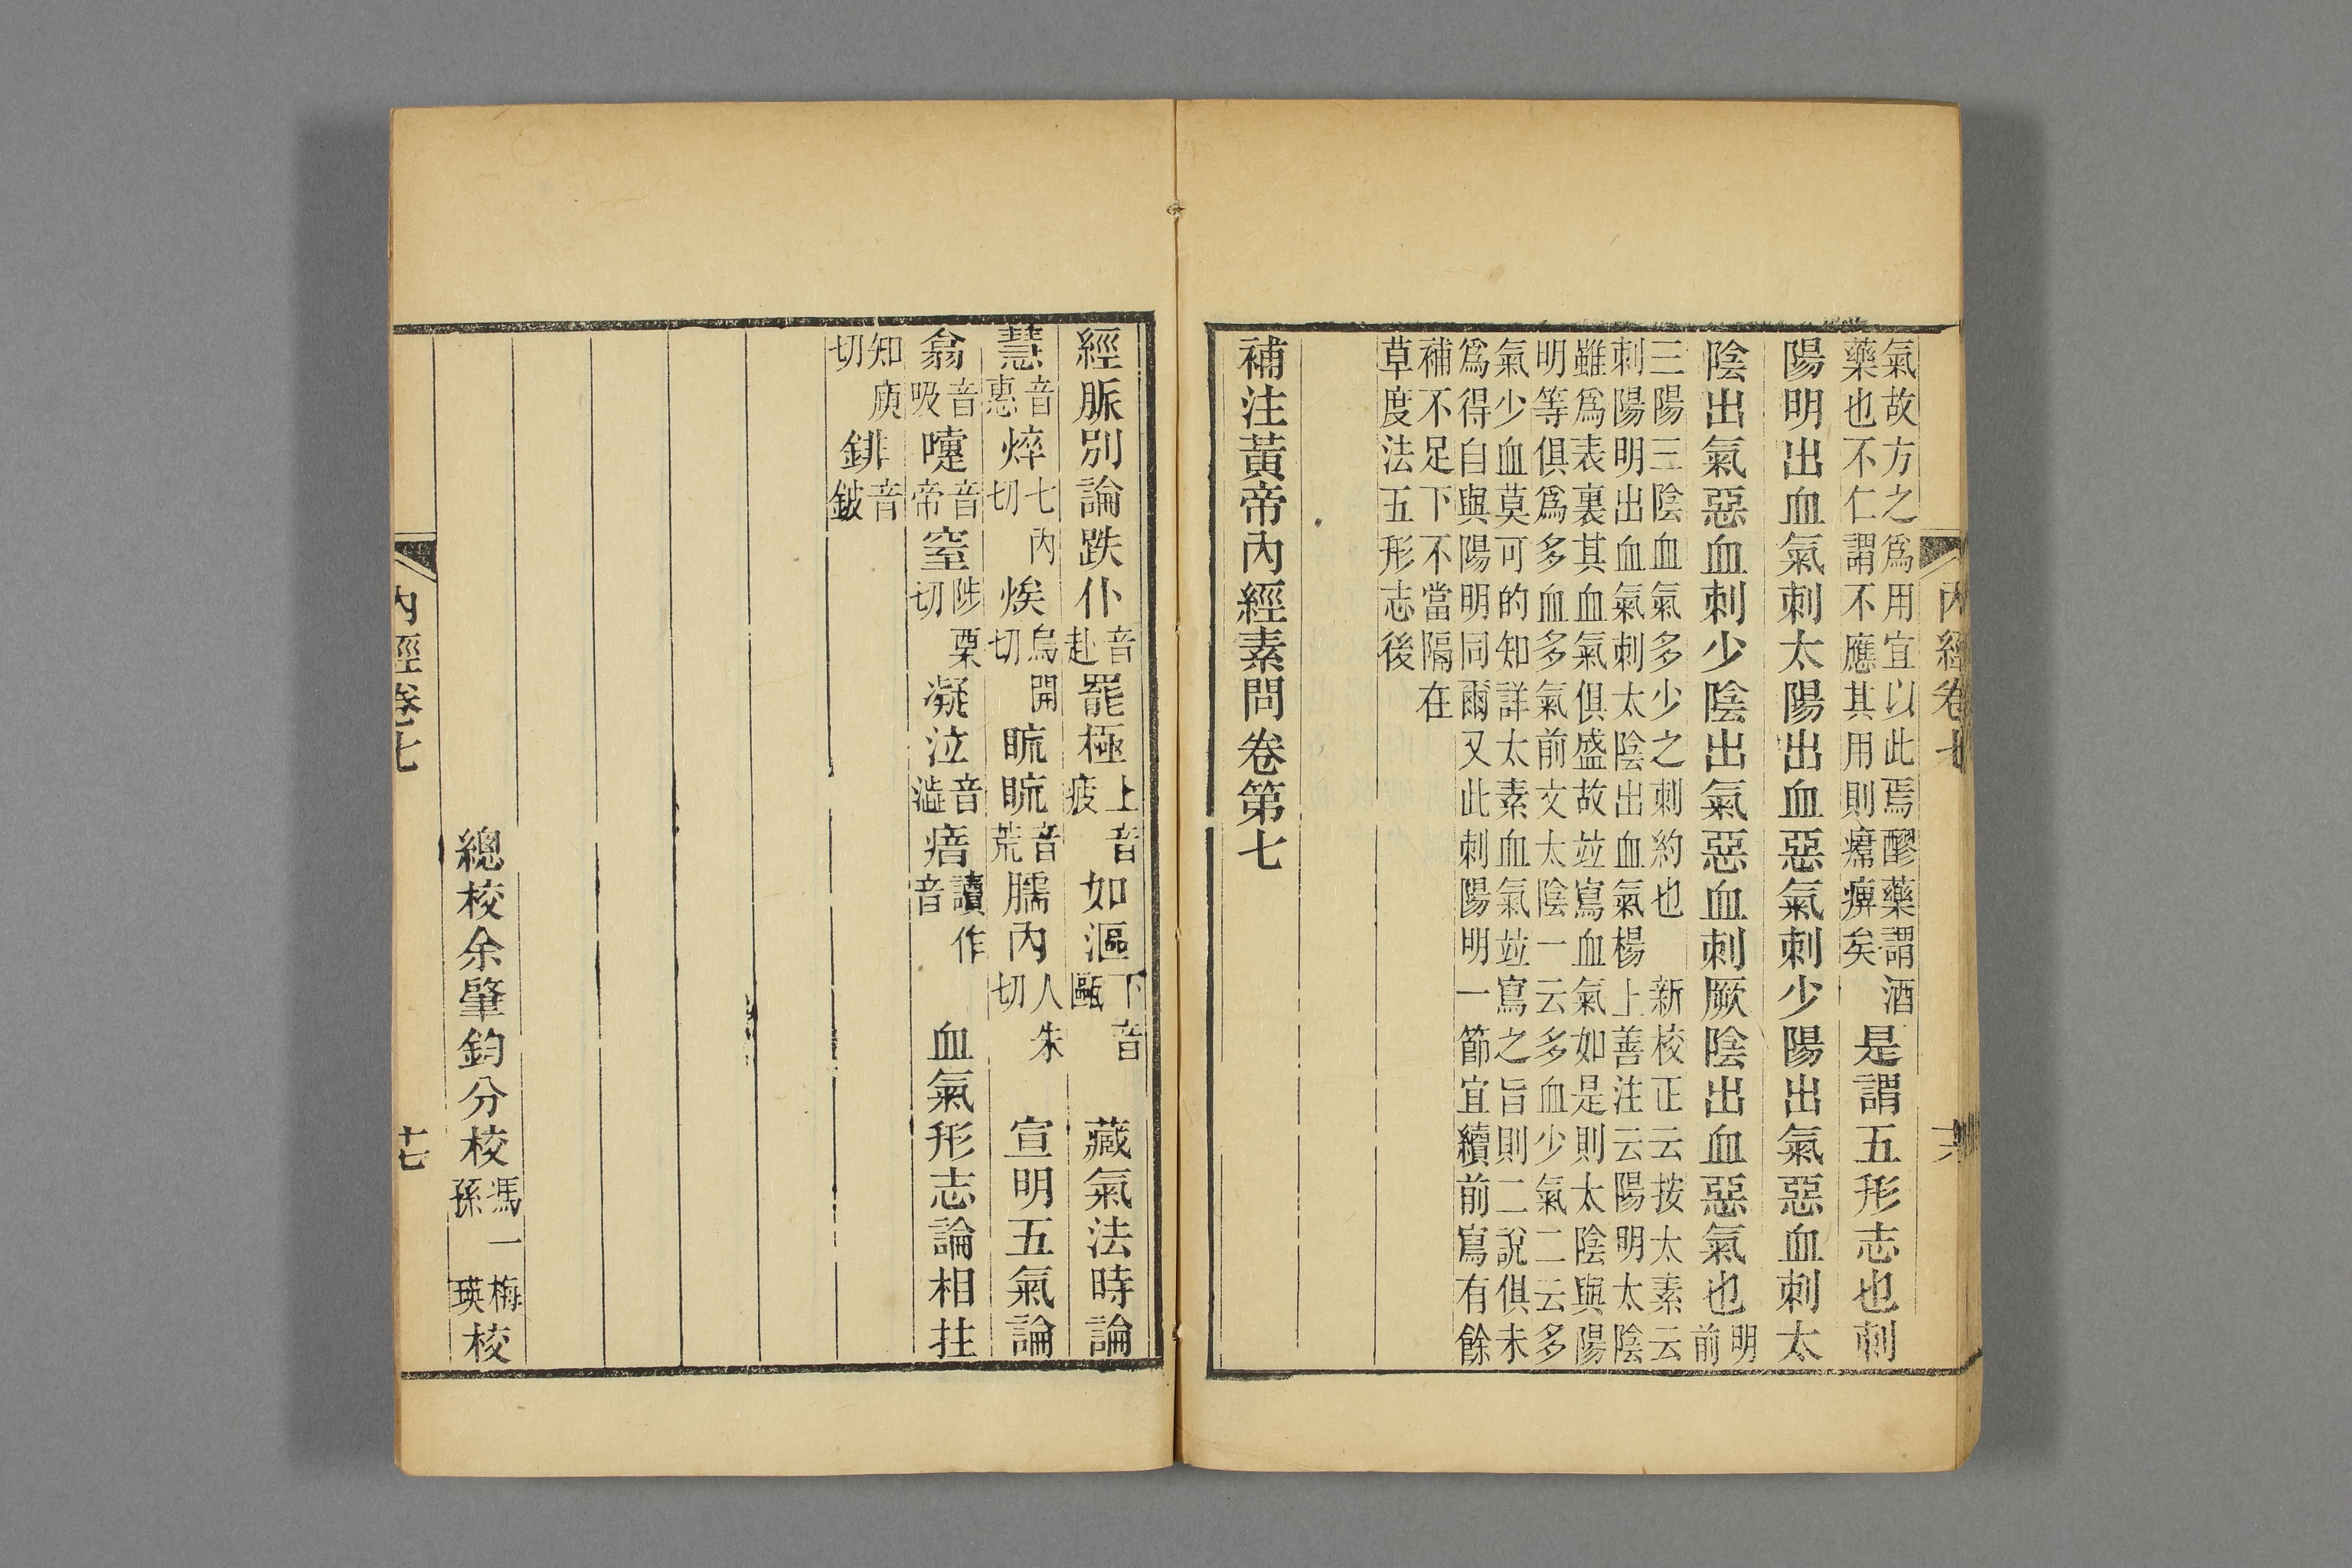 氣故方之爲用宜以此焉醪藥謂酒
藥也不仁謂不應其用則𤸷痹矣
是謂五形志也刺
陽明出血氣刺太陽出血惡氣刺少陽出氣惡血刺太
陰出氣惡血刺少陰出氣惡血刺厥陰出血惡氣也
明
前
三陽三陰血氣多少之刺約也 新校正云按太素云
刺陽明出血氣刺太陰出血氣楊上善注云陽明太陰
雖爲表裏其血氣俱盛故竝寫血氣如是則太陰與陽
明等俱爲多血多氣前文太陰一云多血少氣二云多
氣少血莫可的知詳太素血氣竝寫之旨則二說俱未
爲得自與陽明同爾又此刺陽明一節宜續前寫有餘
補不足下不當隔在
草度法五形志後
補注黃帝內經素問卷第七
內經卷七
經脈別論跌仆音赴罷極上音疲如漚下音甌 藏氣法時論
慧音惠焠七內切㶼烏開切䀮䀮音荒臑內人朱切 宣明五氣論
翕音吸嚏音帝窒陟栗切凝泣音澁瘖讀作音 血氣形志論相拄
知庾切
鋛音鈹
總校余肇鈞分校馮一梅孫瑛校
內經卷七
十七